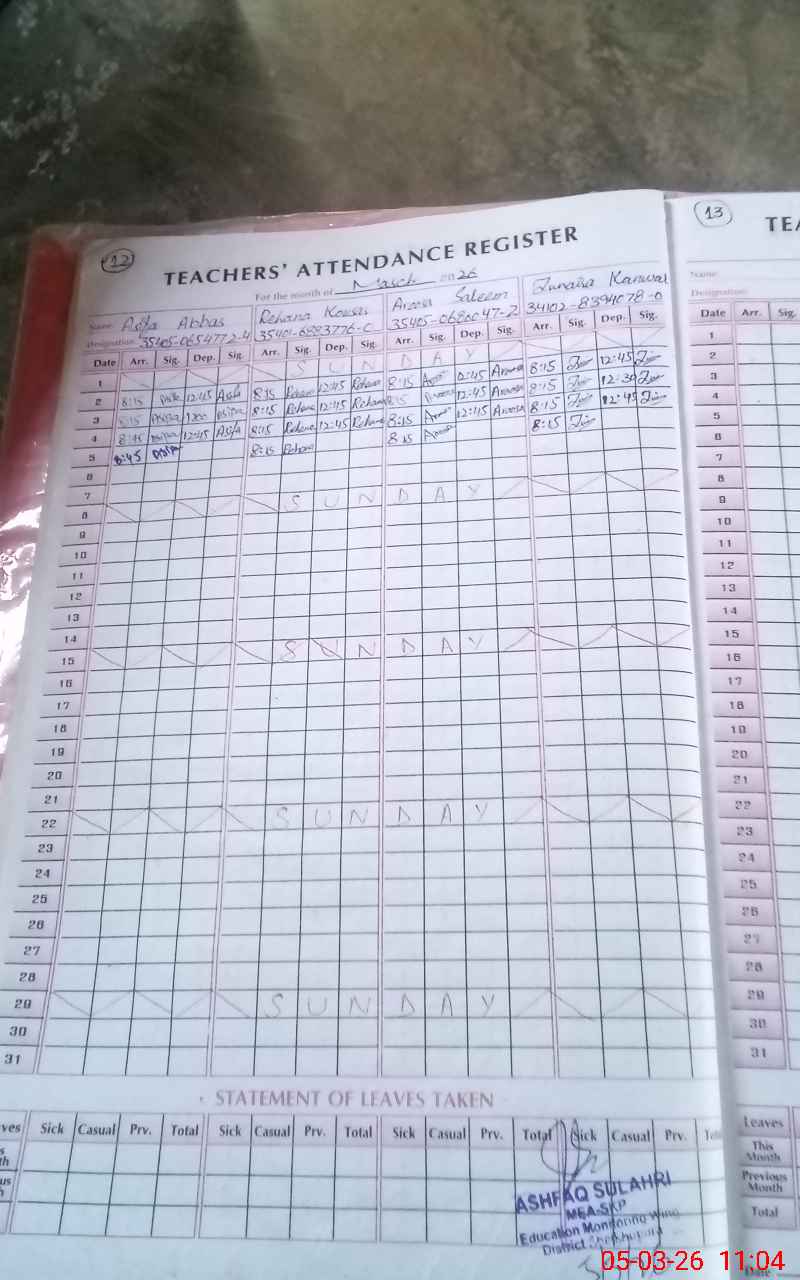 12
TEACHERS' ATTENDANCE REGISTER
For the month of March 2026
Name: Asifa Abbas Rehana Kousar Aroosa Saleem Zunaira Kanwal
Designation: 35405-0654772-4 35401-6883776-0 35405-0680047-2 34102-8394078-0
Date Arr. Sig. Dep. Sig. Arr. Sig. Dep. Sig. Arr. Sig. Dep. Sig. Arr. Sig. Dep. Sig.
1 S U N D A Y
2 8:15 12:45 Asifa 8:15 Rehana 12:45 Rehana 8:15 12:45 Aroosa 8:15 12:45
3 8:15 Asifa 1200 Asifa 8:15 Rehana 12:45 Rehana 8:15 Aroosa 12:45 Aroosa 8:15 12:30
4 8:15 Asifa 12:45 Asifa 8:15 Rehana 12:45 Rehana 8:15 12:45 Aroosa 8:15 12:45
5 8:45 Asifa 8:15 Rehana 8:15 8:15
6
7
8 S U N D A Y
9
10
11
12
13
14
15 S U N D A Y
16
17
18
19
20
21
22 S U N D A Y
23
24
25
26
27
28
29 S U N D A Y
30
31
STATEMENT OF LEAVES TAKEN
Sick Casual Prv. Total Sick Casual Prv. Total Sick Casual Prv. Total Sick Casual Prv.
ASHFAQ SULAHRI
MEA-SKP
Education Monitoring Wing
District Sheikhupura
13
Name:
Designation:
Date Arr. Sig.
1
2
3
4
5
6
7
8
9
10
11
12
13
14
15
16
17
18
19
20
21
22
23
24
25
26
27
28
29
30
31
Leaves
This Month
Previous Month
Total
Date
05-03-26 11:04